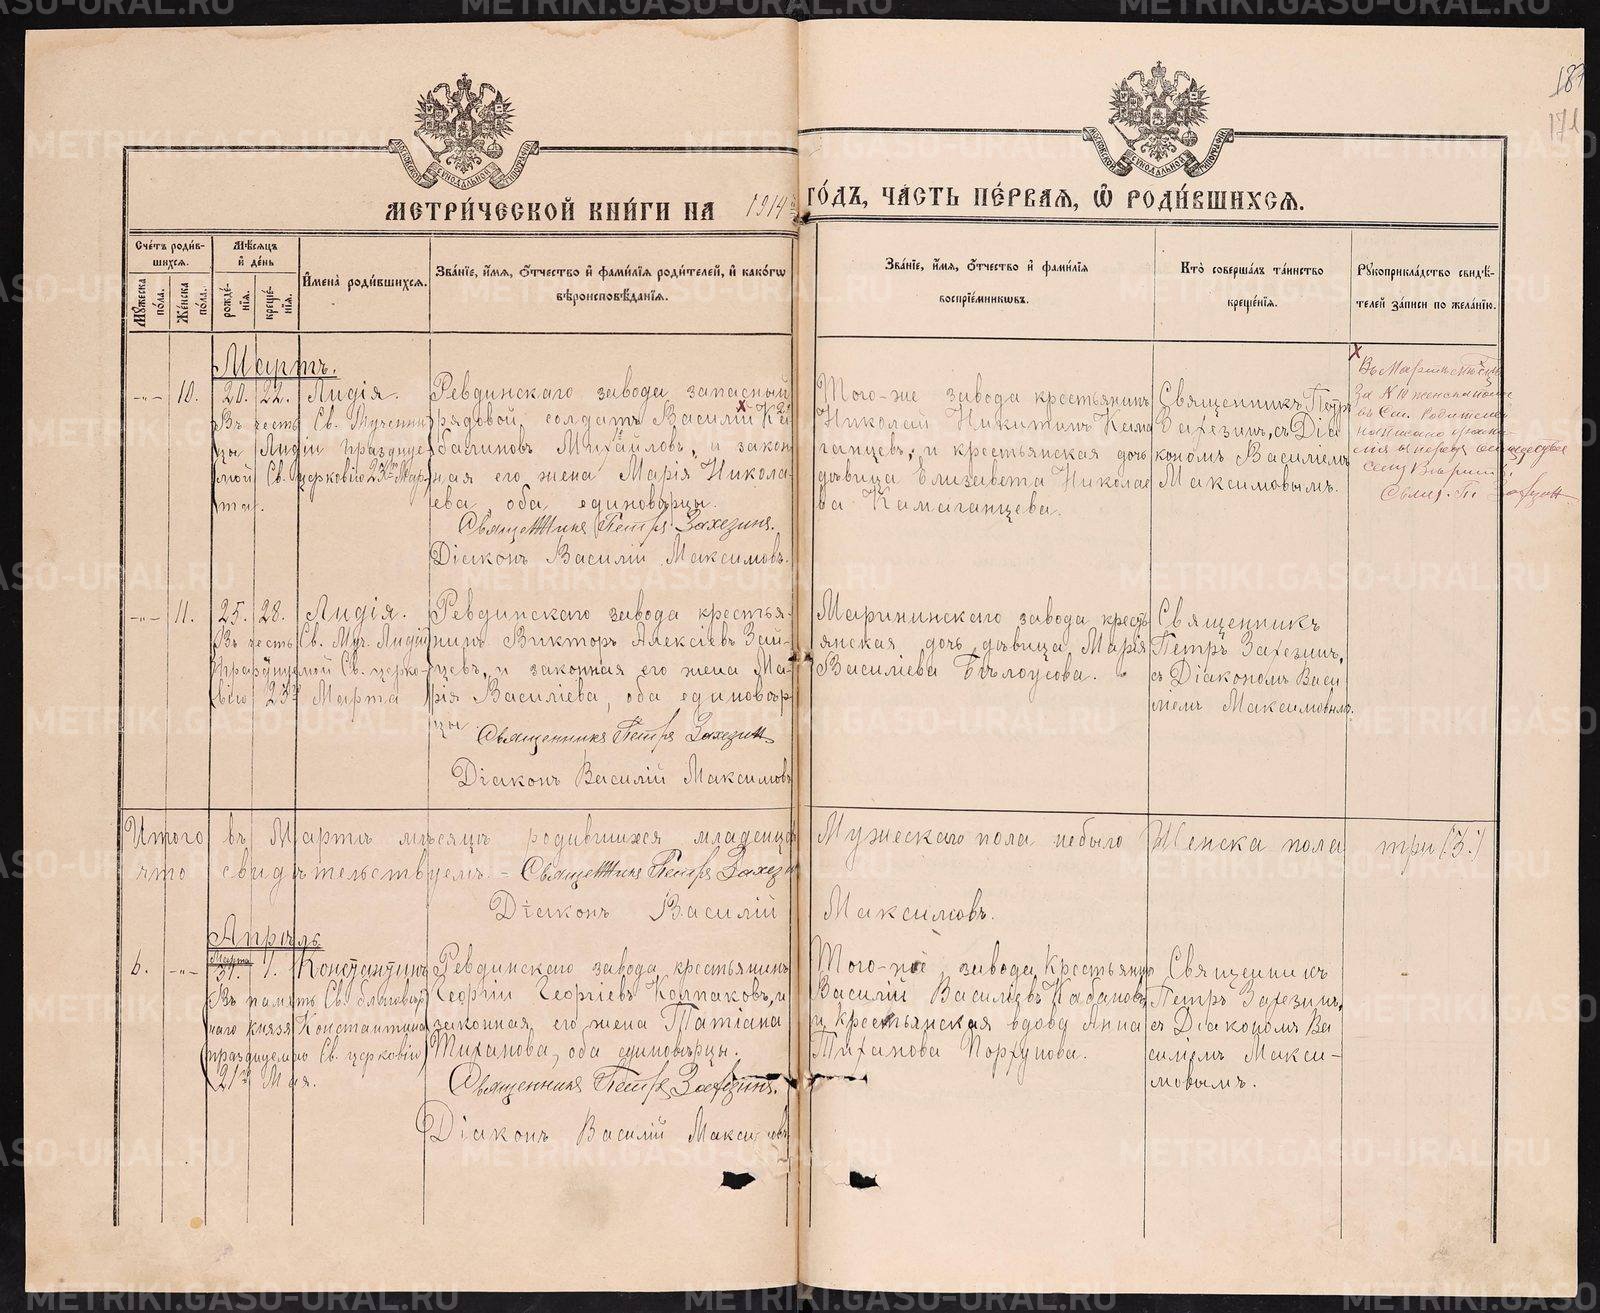 187
171
МОСКОВСКОЙ СѴНОДАЛЬНОЙ ТИПОГРАФІИ
МОСКОВСКОЙ СѴНОДАЛЬНОЙ ТИПОГРАФІИ
МЕТРИ́ЧЕСКОЙ КНИ́ГИ НА 1914 ГО́ДЪ, ЧА́СТЬ ПЕ́РВАЯ, Ѿ РОДИ́ВШИХСЯ.
Сче́тъ роди́в-
шихся.
Му́жеска по́ла.
Же́нска по́ла.
Мѣ́сяцъ
и҆ де́нь
рожде́-
нїя.
креще́-
нїя.
И҆мена̀ роди́вшихся.
Зва́нїе, и҆́мя, ѻ҆́тчество и҆ фами́лїя роди́телей, и҆ како́гѡ
вѣроисповѣ́данїя.
Зва́нїе, и҆́мя, ѻ҆́тчество и҆ фами́лїя
воспрїе́мникѡвъ.
Кто̀ соверша́лъ та́инство
креще́нїя.
Рꙋкоприкла́дство свидѣ́-
телей за́писи по жела́нїю.
Мартъ.
-„- 10. 20. 22. Лидія.
Въ честь Св. Мучени
цы Лидіи празднуе
мой Св. церковію 23го Мар-
та.
Ревдинскаго завода запасный
рядовой солдатъ Василій
Михайловъ, и закон
ная его жена Марія Никола-
ева, оба единовѣрцы.
Священникъ Петръ Захезинъ.
Діаконъ Василій Максимовъ.
Того-же завода крестьянинъ
Николай Никитинъ Кама
ганцевъ, и крестьянская дочь
дѣвица Елизавета Николае
ва Камаганцева.
Священникъ Петръ
Захезинъ, съ Діа
кономъ Василіемъ
Максимовымъ.
Въ Мартѣ
За № 10 женска пола
-„- 11. 25. 28. Лидія.
Въ честь Св. Муч. Лидіи
празднуемой Св. церко-
вію 23го Марта
Ревдинскаго завода крестья-
нинъ Викторъ Алексіевъ Зай-
цевъ, и законная его жена Ма-
рія Василіева, оба единовѣр
цы.
Священникъ Петръ Захезинъ
Діаконъ Василій Максимовъ
Марининскаго завода кресть
янская дочь дѣвица Марія
Василіева Бѣлоусова.
Священникъ
Петръ Захезинъ,
съ Діакономъ Васи
ліемъ Максимовымъ.
Итого въ Мартѣ мѣсяцѣ родившихся младенцевъ Мужескаго пола небыло Женска пола три (3.)
что свидѣтельствуемъ. - Священникъ Петръ Захезинъ
Діаконъ Василій Максимовъ.
Апрѣль
Марта
6. -„- 31. 1. Константинъ
Въ память Св. благовѣр
наго князя Константина
празднуемаго Св. церковію
21го Мая.
Ревдинскаго завода крестьянинъ
Георгій Георгіевъ Колпаковъ, и
законная его жена Татіана
Тиханова, оба единовѣрцы.
Священникъ Петръ Захезинъ.
Діаконъ Василій Максимовъ
Того-же завода крестьянинъ
Василій Василіевъ Кабановъ
и крестьянская вдова Анна
Тиханова Порхунова.
Священникъ
Петръ Захезинъ,
съ Діакономъ Ва
силіемъ Макси-
мовымъ.
METRIKI.GASO-URAL.RU